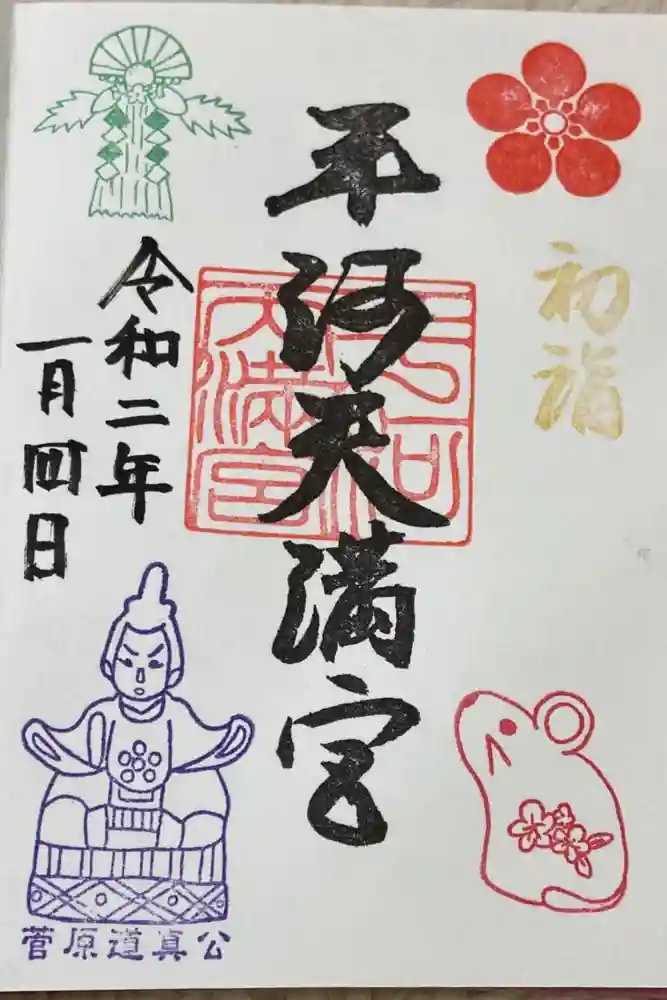 初詣
平河天満宮
平河
天満宮
令和二年
一月四日
菅原道真公